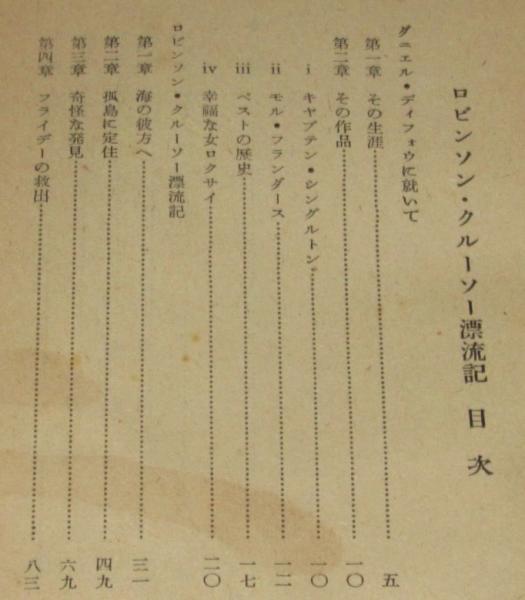 ロビンソン・クルーソー漂流記 目次
ダニエル・ディフォウに就いて
第一章 その生涯…………五
第二章 その作品…………一〇
i キャプテン・シングルトン…………一〇
ii モル・フランダース…………一二
iii ペストの歴史…………一七
iv 幸福な女ロクサイ…………二〇
ロビンソン・クルーソー漂流記
第一章 海の彼方へ…………三一
第二章 孤島に定住…………四九
第三章 奇怪な発見…………六九
第四章 フライデーの救出…………八三